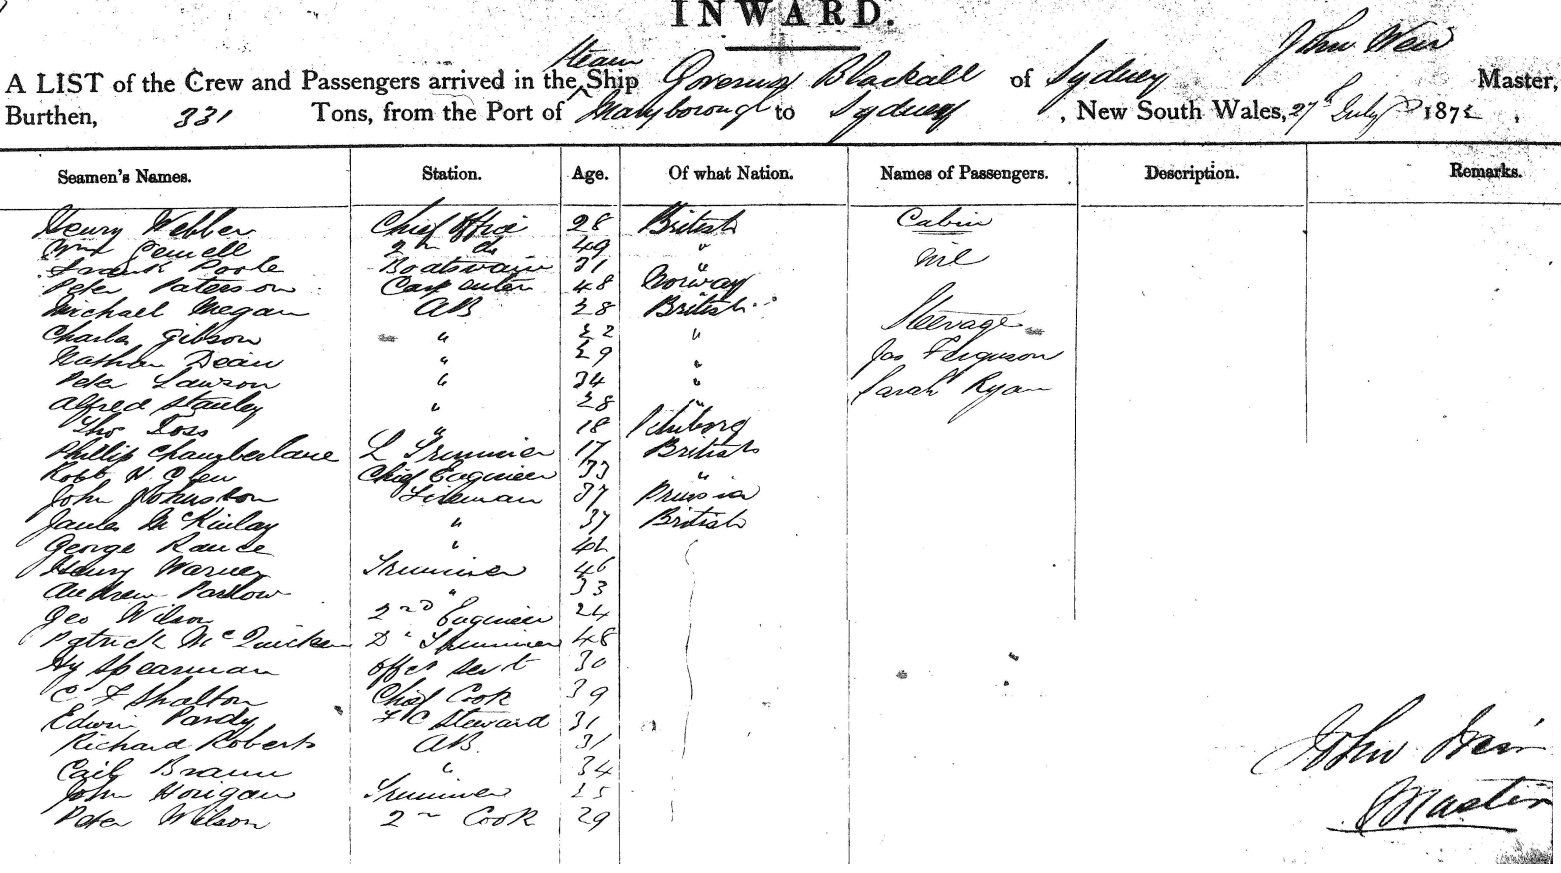 INWARD.
A LIST of the Crew and Passengers arrived in the Steam Ship Governor Blackall of Sydney John Weir Master,
Burthen, 331 Tons, from the Port of Maryborough to Sydney, New South Wales, 27th July 187
Seamen's Names. Station. Age. Of what Nation. Names of Passengers. Description. Remarks.
Henry Webber Chief Office 28 British Cabin
Wm 2nd do 49 " Nil
Frank Poole Boatswain 31 "
Peter Paterson Carpenter 48 Norway
Michael Megan AB 28 British Steerage
Charles Gibson " 22 "
Nathan Dean " 29 " Jas Ferguson
Peter Lawson " 34 " Sarah Ryan
Alfred Stanley " 28 "
Thos " 18
Phillip Chamberlane L Trimmer 17 British
Robt H Glen Chief Engineer 33 "
John Johnston Fireman 37 Prussia
James McKinlay " 37 British
George Rance "
Henry Warner Trimmer 46
Andrew Paslow " 33
Geo Wilson 2nd Engineer 24
Patrick McQuicken Dy Trimmer 48
Hy Spearman Offcs Servt 30
C F Shalton Chief Cook 39
Edwin Pardy F C Steward 31
Richard Roberts AB. 31
Braun " 34
John Horigan Trimmer 25
Peter Wilson 2nd Cook 29
John Weir
Master